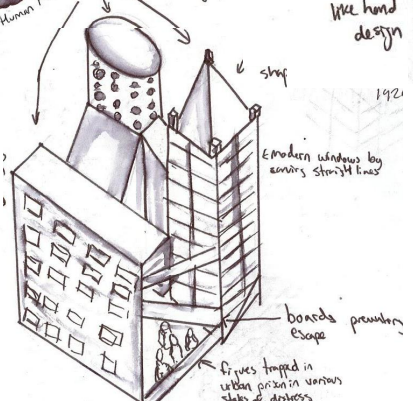 Human
like hand
design
shap
192
modern windows by
straight lines
boards preventing
escape
figures trapped in
urban prison in various
states of distress